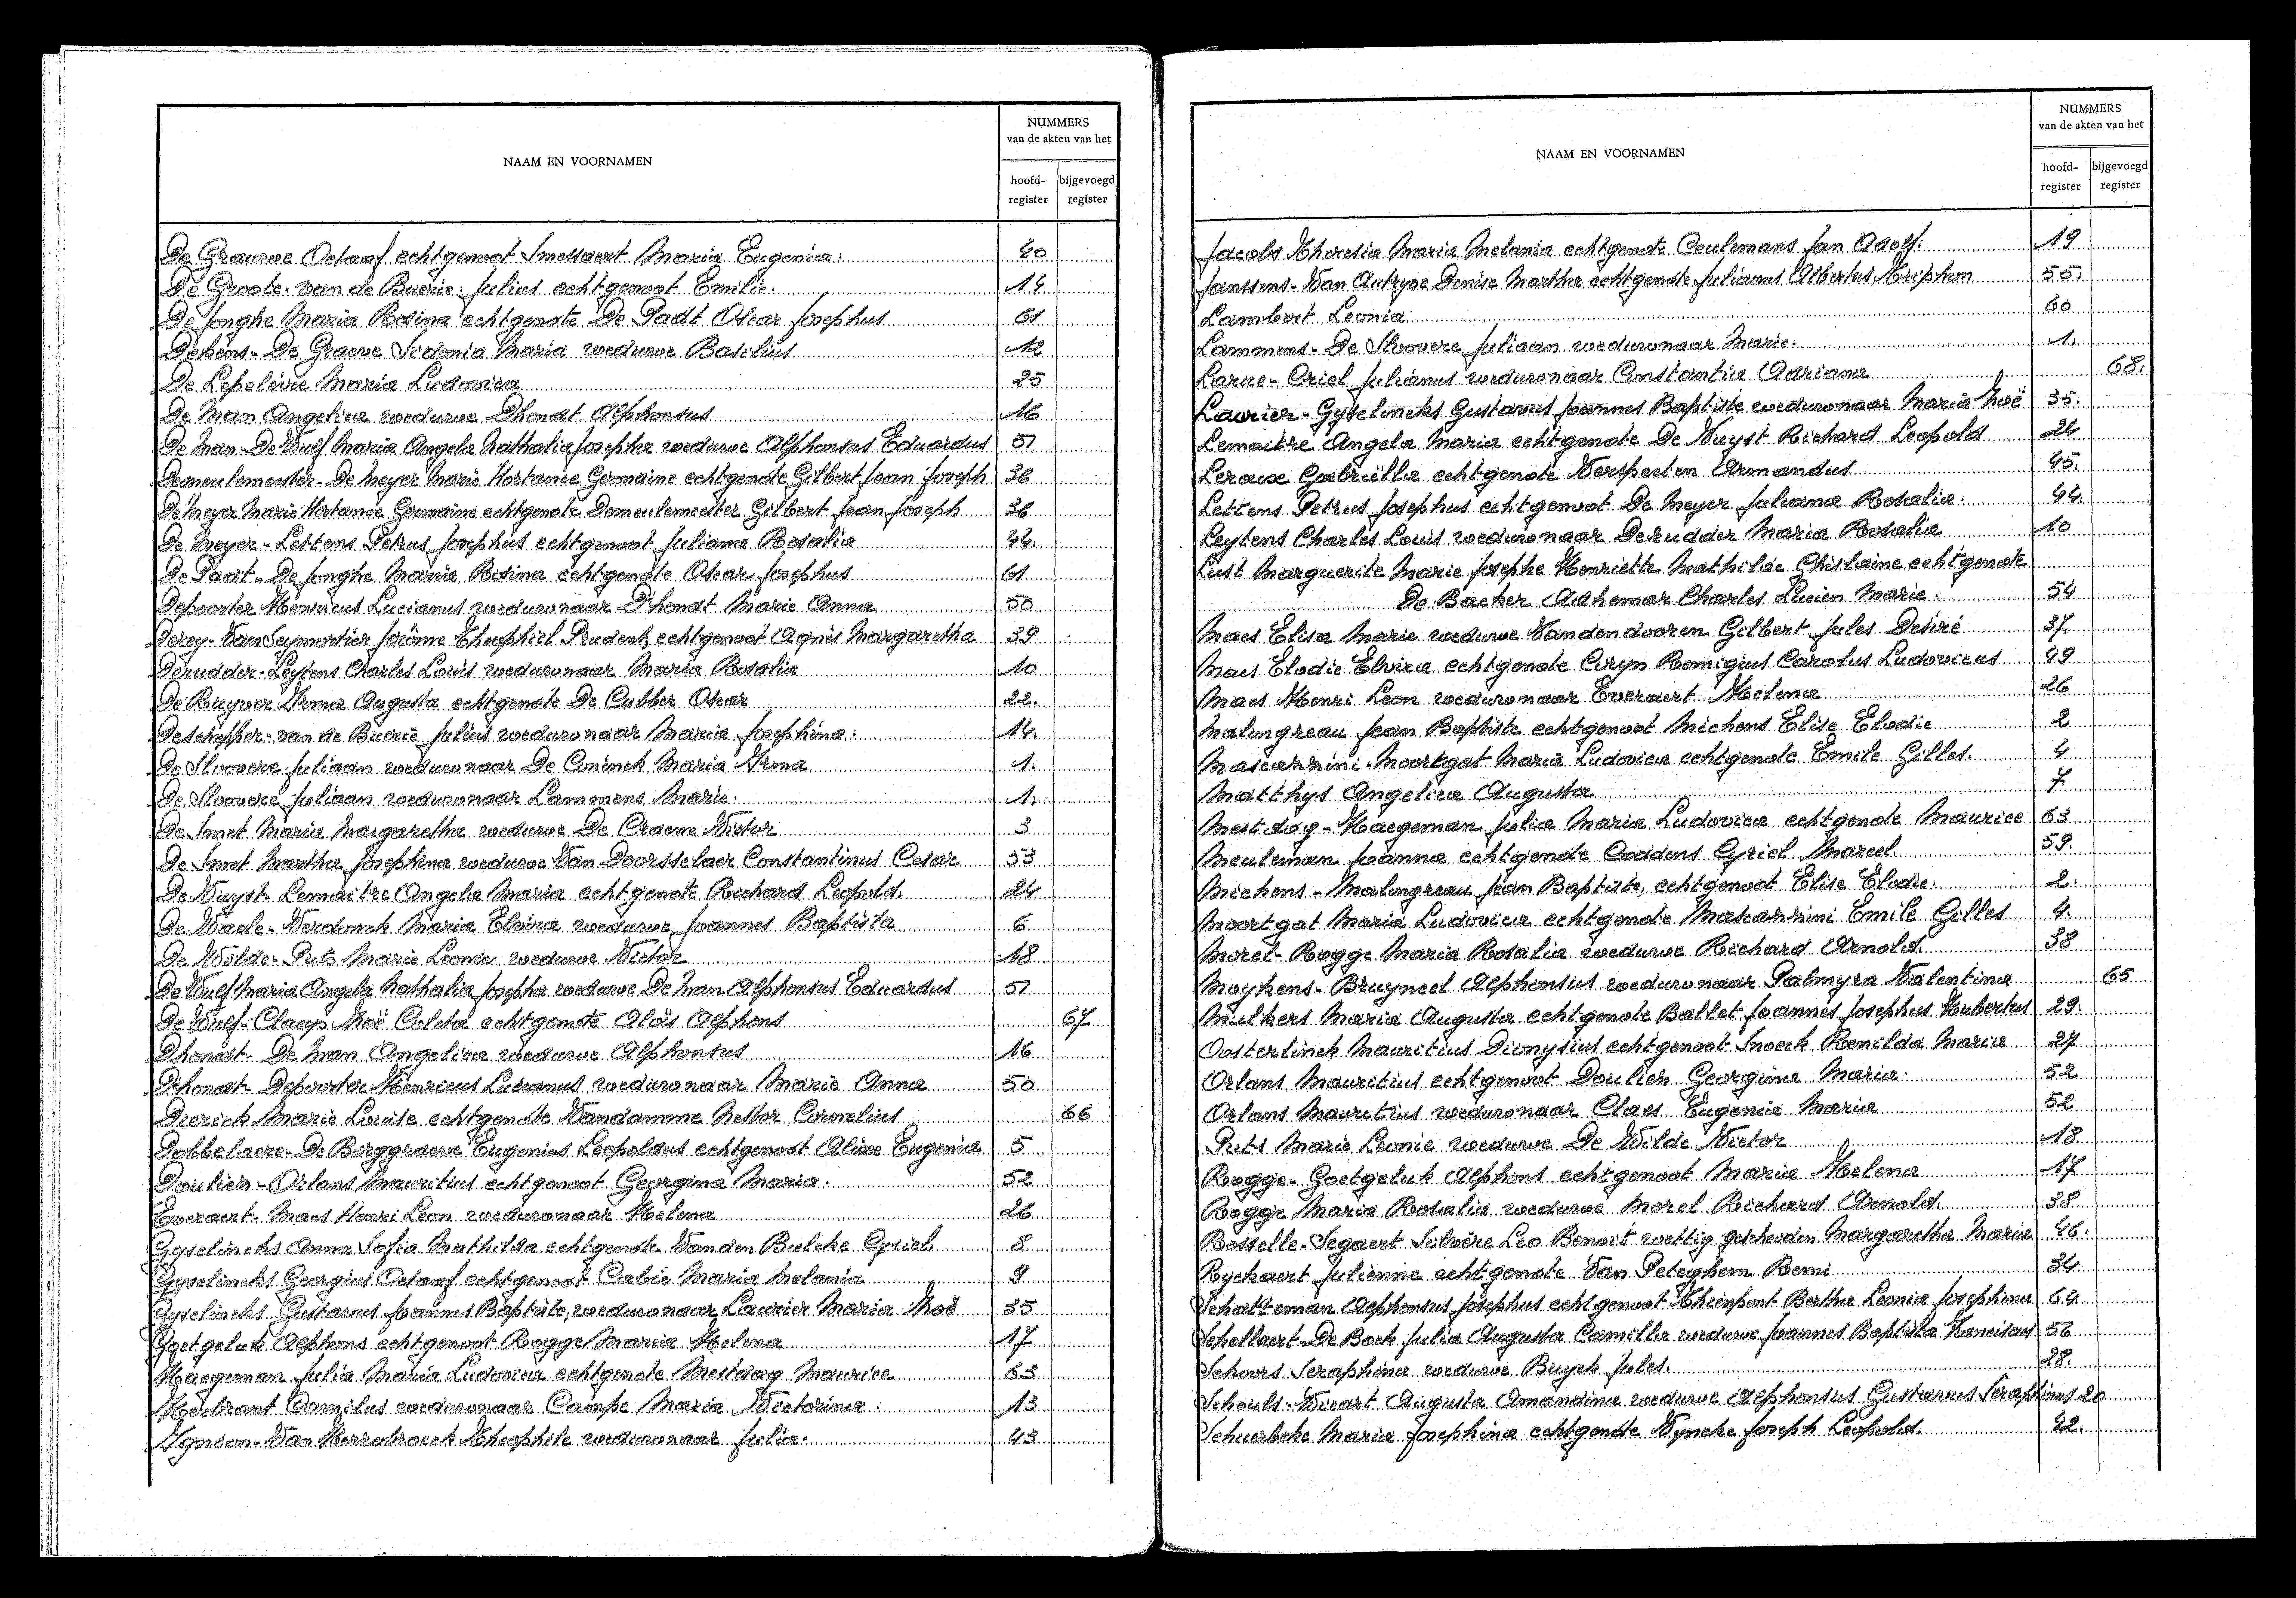 NAAM EN VOORNAMEN
NUMMERS
van de akten van het
hoofd-
register
bijgevoegd
register
De Grauwe Octaaf echtgenoot Smessaert Maria Eugenia. 40
De Groote - van de Buerie Julius echtgenoot Emilie. 14
De Jonghe Maria Rosina echtgenote De Padt Oscar Josephus 61
Dekens - De Graeve Sidonia Maria weduwe Basilius 12
De Lepeleire Maria Ludovica 25
De Man Angelica weduwe Dhondt Alphonsus 16
De Man - De Wulf Maria Angela Nathalia Josepha weduwe Alphonsus Eduardus 51
Demeulemeester - De Meyer Marie Hortance Germaine echtgenote Gilbert Jean Joseph 36
De Meyer Marie Hortance Germaine echtgenote Demeulemeester Gilbert Jean Joseph 36
De Meyer - Lettens Petrus Josephus echtgenoot Juliana Rosalia 44.
De Padt - De Jonghe Maria Rosina echtgenote Oscar Josephus 61
Depoorter Henricus Lucianus weduwnaar D'hondt Marie Anna 50
Derey - Van Seymortier Jerôme Theophiel Prudent echtgenoot Agnès Margaretha 39
Derudder - Leytens Charles Louis weduwnaar Maria Rosalia 10
De Ruyver Irma Augusta echtgenote De Cubber Oscar 22.
Deschepper - van de Buerie Julius weduwnaar Maria Josephina. 14.
De Sloovere Juliaan weduwnaar De Coninck Maria Irma 1.
De Sloovere Juliaan weduwnaar Lammens Marie. 1.
De Smet Maria Margaretha weduwe De Craene Victor 3
De Smet Martha Josephina weduwe Van Doorsselaer Constantinus Cesar 53
De Vuyst - Lemaitre Angela Maria echtgenote Richard Leopold. 24
De Waele - Verdonck Maria Elvira weduwe Joannes Baptista 6
De Wilde - Puts Marie Leonie weduwe Victor 18
De Wulf Maria Angela Nathalia Josepha weduwe De Man Alphonsus Eduardus 51
De Wulf - Claeys Noë Coleta echtgenote Aloïs Alphons 67
Dhondt - De Man Angelica weduwe Alphonsus 16
D'hondt - Depoorter Henricus Lucianus weduwnaar Marie Anna 50
Dierick Marie Louise echtgenote Vandamme Nestor Cornelius 66
Dobbelaere - De Borggraeve Eugenius Leopoldus echtgenoot Alixe Eugenia 5
Doulien - Orlans Mauritius echtgenoot Georgina Maria. 52
Everaert - Maes Henri Leon weduwnaar Helena 26
Gyselincks Anna Sofia Mathilda echtgenote Van den Bulcke Cyriel. 8
Gyselincks Georgius Octaaf echtgenoot Calcie Maria Melania 9
Gyselincks Gustavus Joannes Baptiste, weduwnaar Laurier Maria Noë 35
Goetgeluk Alphons echtgenoot Rogge Maria Helena 17
Haegeman Julia Maria Ludovica echtgenote Mestdag Maurice 63
Herbrant Camilus weduwnaar Campe Maria Victorina. 13
Ignion - Van Herrebroeck Theophile weduwnaar Julia. 43
NAAM EN VOORNAMEN
NUMMERS
van de akten van het
hoofd-
register
bijgevoegd
register
Jacobs Theresia Maria Melania echtgenote Ceulemans Jan Adolf. 19
Janssens - Van Autryve Denise Martha echtgenote Julianus Albertus Triphon 55.
Lambert Leonia 60
Lammens - De Sloovere Juliaan weduwnaar Marie. 1.
Larne - Criel Julianus weduwnaar Constantia Adriana 68.
Laurier - Gyselincks Gustavus Joannes Baptiste weduwnaar Maria Noë 35.
Lemaitre Angela Maria echtgenote De Vuyst Richard Leopold 24
Leroux Gabriëlla echtgenote Verspecten Armandus 45.
Lettens Petrus Josephus echtgenoot De Meyer Juliana Rosalia. 44.
Leytens Charles Louis weduwnaar Derudder Maria Rosalia 10
Lust Marguerite Marie Josephe Henriette Mathilde Ghislaine echtgenote
De Backer Adhemar Charles Lucien Marie. 54
Maes Elisa Marie weduwe Vandendooren Gilbert Jules Desiré 37
Maes Elodie Elvira echtgenote Coryn Remigius Carolus Ludovicus 49
Maes Henri Leon weduwnaar Everaert Helena 26
Malingreau Jean Baptiste echtgenoot Michens Elise Elodie 2
Mascarini - Moortgat Maria Ludovica echtgenote Emile Gilles. 4
Matthys Angelica Augusta 7
Mestdag - Haegeman Julia Maria Ludovica echtgenote Maurice 63
Meuleman Joanna echtgenote Coddens Cyriel Marcel. 59.
Michens - Malingreau Jean Baptiste, echtgenoot Elise Elodie. 2.
Moortgat Maria Ludovica echtgenote Mascarini Emile Gilles 4.
Morel - Rogge Maria Rosalia weduwe Richard Arnold. 38
Moykens - Bruyneel Alphonsius weduwnaar Palmyra Valentina 65
Mulkers Maria Augusta echtgenote Ballet Joannes Josephus Hubertus 29.
Oosterlinck Mauritius Dionysius echtgenoot Snoeck Romilda Maria 27
Orlans Mauritius echtgenoot Doulien Georgina Maria. 52
Orlans Mauritius weduwnaar Claes Eugenia Maria 52
Puts Marie Leonie weduwe De Wilde Victor 18
Rogge - Goetgeluk Alphons echtgenoot Maria Helena 17
Rogge Maria Rosalia weduwe Morel Richard Arnold. 38
Rosselle - Segaert Silvère Leo Benoit wettig gescheiden Margaretha Maria 46.
Ryckaert Julienne echtgenote Van Peteghem Remi 34
Schatteman Alphonsus Josephus echtgenoot Thienpont Bertha Leonia Josephina 64
Schellaert - De Bock Julia Augusta Camilla weduwe Joannes Baptista Franciscus 56
Schoors Seraphina weduwe Buyck Jules. 28.
Schouls - Vivart Augusta Amandina weduwe Alphonsus Gustavus Seraphinus 20
Schuerbeke Maria Josephina echtgenote Vyncke Joseph Leopold. 42.